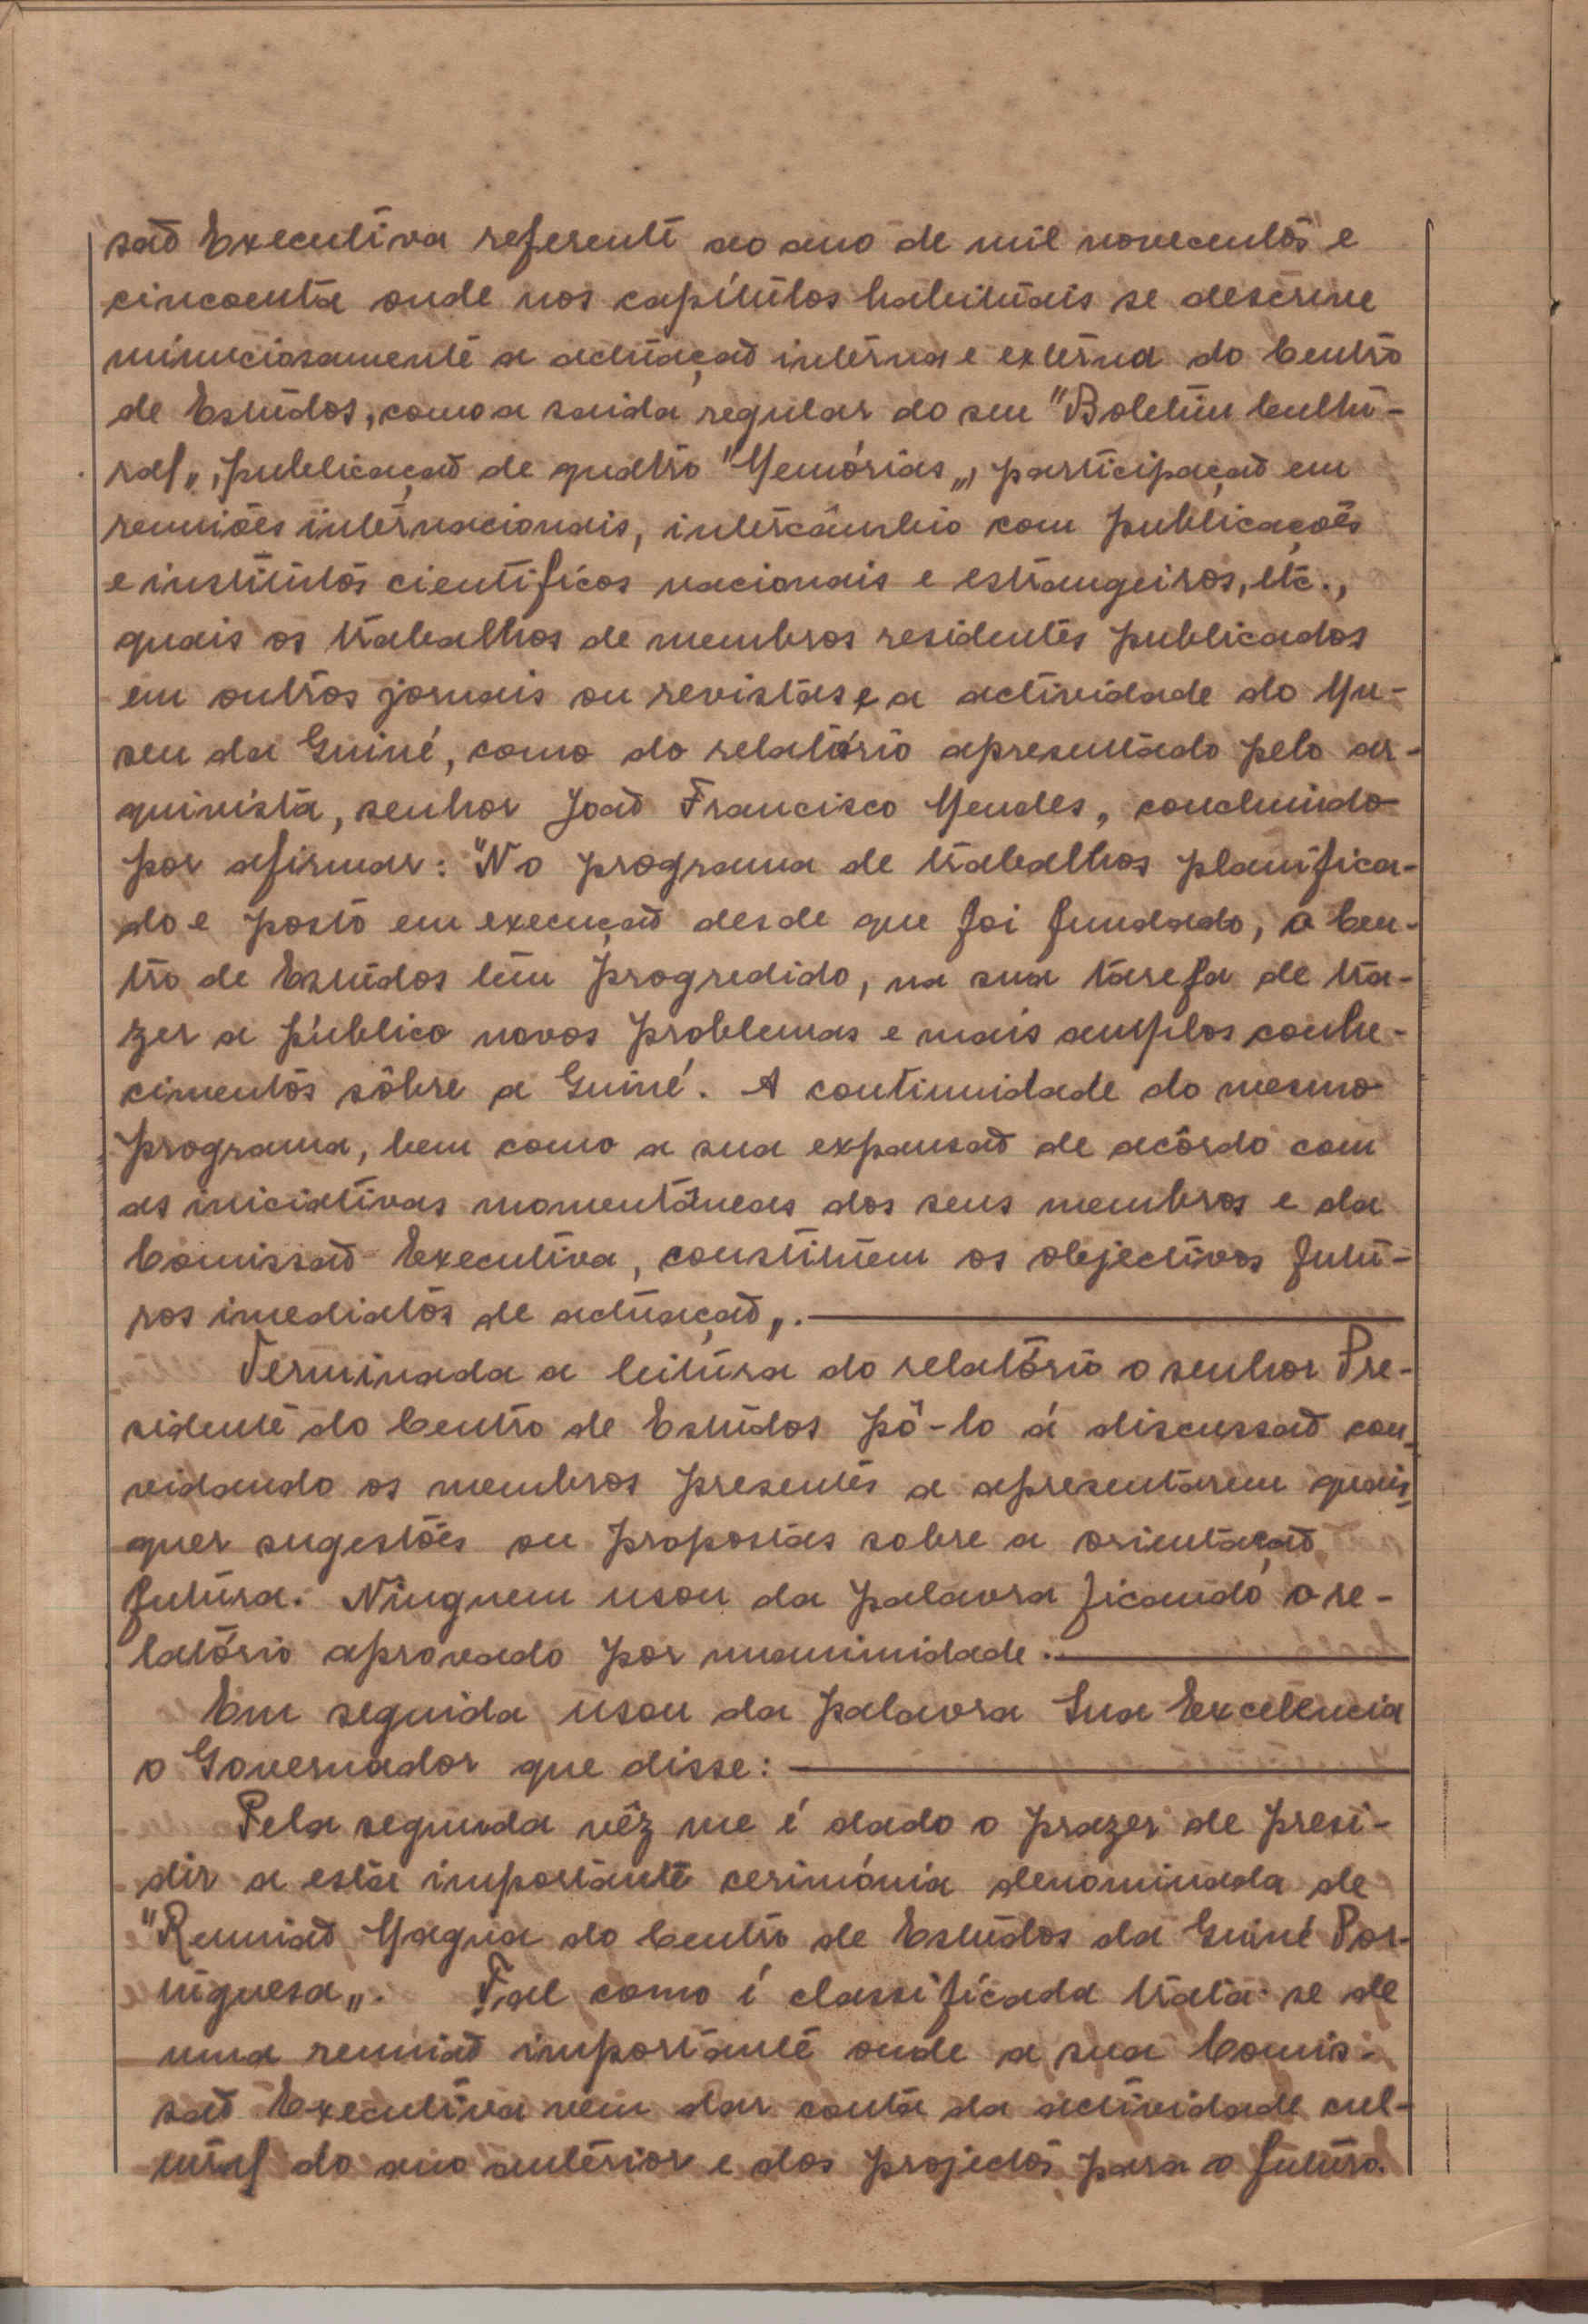 são Executiva referente ao ano de mil novecentos e
cincoenta onde nos capítulos habituais se descreve
minuciosamente a actuação interna e externa do Centro
de Estudos, como a saida regular do seu "Boletim Cultu-
ral„, publicação de quatro "Memórias„, participação em
reuniões internacionais, intercâmbio com publicações
e institutos cientificos nacionais e estrangeiros, etc.,
quais os trabalhos de membros residentes publicados
em outros jornais ou revistas e a actividade do Mu-
seu da Guiné, como do relatório apresentado pelo ar-
quivista, senhor João Francisco Mendes, concluindo
por afirmar: "No programa de trabalhos planifica-
do e posto em execução desde que foi fundado, o Cen-
tro de Estudos tem progredido, na sua tarefa de tra-
zer a público novos problemas e mais amplos conhe-
cimentos sôbre a Guiné. A continuidade do mesmo
programa, bem como a sua expansão de acôrdo com
as iniciativas momentâneas dos seus membros e da
Comissão Executiva, constituem os objectivos futu-
ros imediatos de actuação„.
Terminada a leitura do relatório o senhor Pre-
sidente do Centro de Estudos pô-lo á discussão con-
vidando os membros presentes a apresentarem quais-
quer sugestões ou propostas sobre a orientação
futura. Ninguem usou da palavra ficando o re-
latório aprovado por unanimidade.
Em seguida usou da palavra Sua Excelencia
o Governador que disse:
Pela segunda vêz me é dado o prazer de presi-
dir a esta importante cerimónia denominada de
"Reunião Magna do Centro de Estudos da Guiné Por-
tuguesa„. Tal como é classificada trata-se de
uma reunião importante onde a sua Comis-
são Executiva vem dar conta da actividade cul-
tural do ano anterior e dos projectos para o futuro.